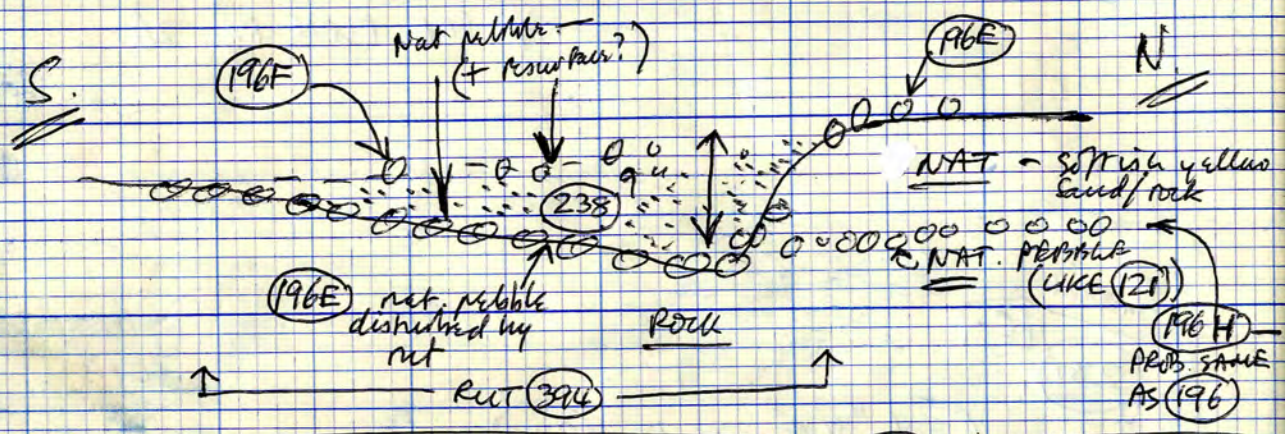 Nat pebble -
(+ resurface?)
196E
S.
N.
196F
NAT - softish yellow
sand/rock
238
NAT. PEBBLE
(LIKE 121)
196E nat. pebble
disturbed by
rut
ROCK
196 H
PROB. SAME
AS 196
RUT 394